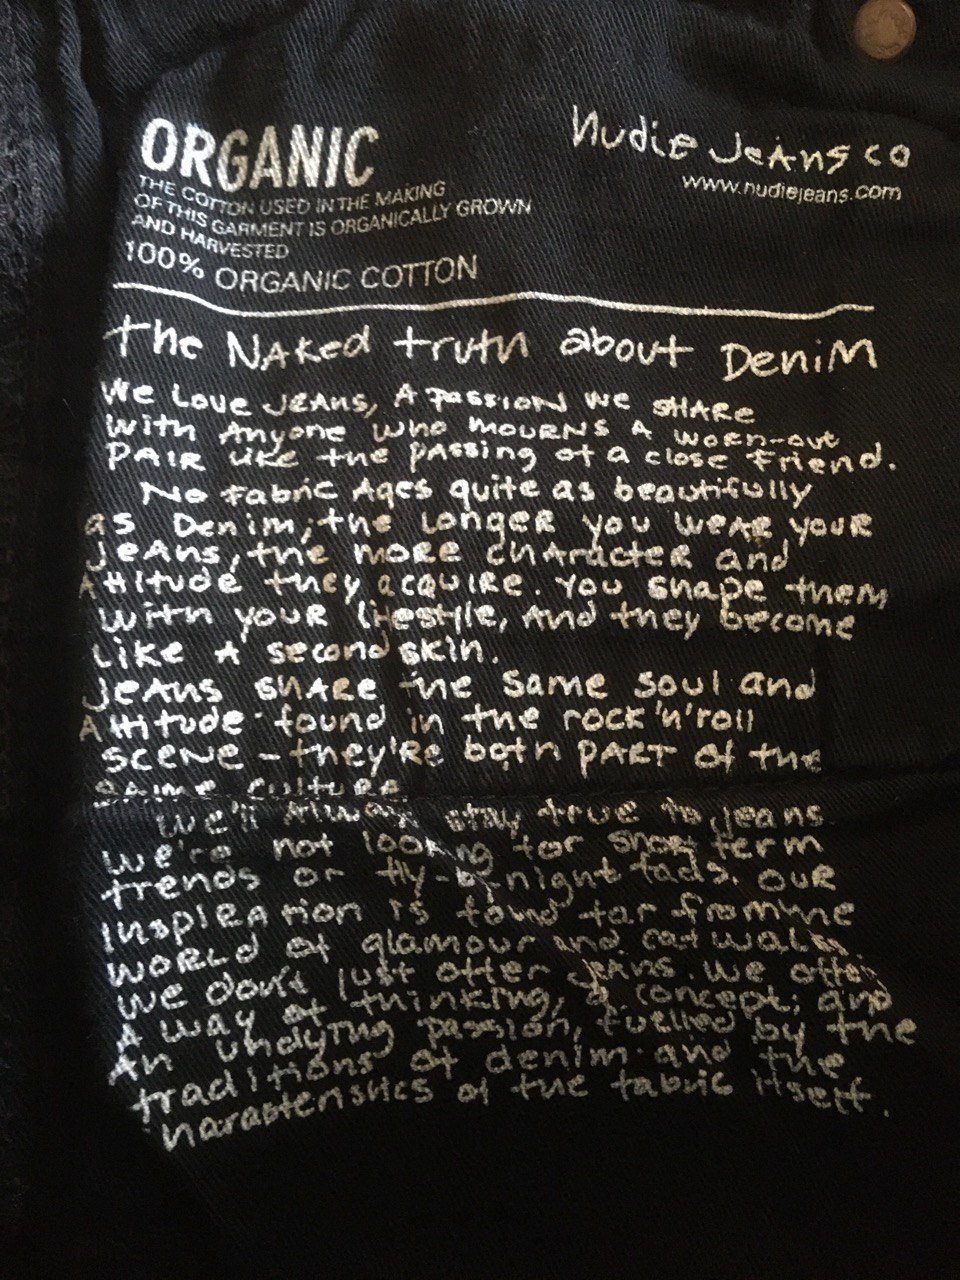 ORGANIC
THE COTTON USED IN THE MAKING
OF THIS GARMENT IS ORGANICALLY GROWN
AND HARVESTED
100% ORGANIC COTTON
Nudie Jeans co
www.nudiejeans.com
the Naked truth about Denim
We Love Jeans, A passion we share
with Anyone who mourns a worn-out
pair like the passing of a close friend.
No fabric Ages quite as beautifully
as Denim; the longer you wear your
jeans, the more character and
Attitude they acquire. You shape them
with your lifestyle, And they become
like A second skin.
Jeans share the same soul and
Attitude found in the rock'n'roll
scene - they're both part of the
same culture
We'll Always stay true to jeans
we're not looking for short term
trends or fly-by-night fads. Our
inspiration is found far from the
world of glamour and catwalks
we don't just offer jeans. we offer
A way of thinking, a concept; and
An undying passion, fuelled by the
traditions of denim and the
characteristics of the fabric itself.